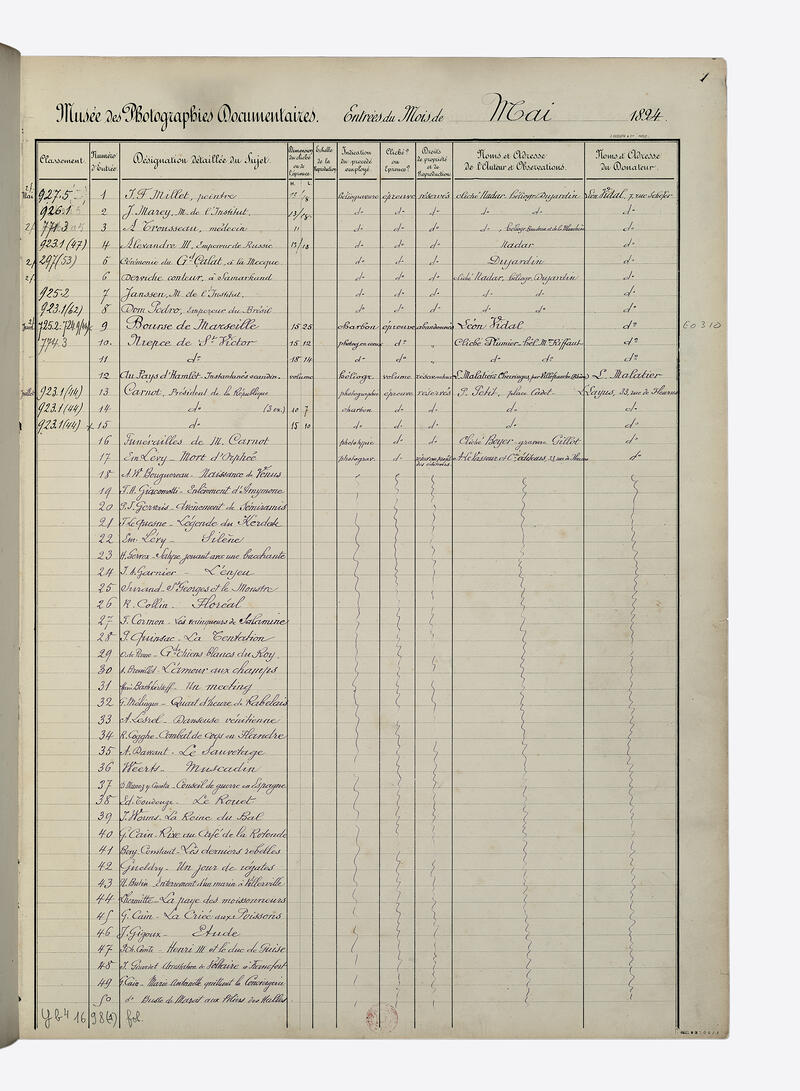 1
Musée des Photographies Documentaires. Entrées du Mois de Mai 1894
Classement. Numéro d'entrée Désignation détaillée du Sujet. Dimension du cliché ou de l'épreuve H. L. Echelle de la Reproduction Indication du procédé employé. Cliché? ou Epreuve? Droits de propriété et de Reproduction Noms et Adresse de l'Auteur et Observations. Noms et Adresse du Donateur.
Mai 927.5 1 J. F. Millet, peintre héliogravure épreuve réservés cliché Nadar, héliogr. Dujardin Léon Vidal, 7, rue Schéfer
926.1 2 J. Marey, M. de l'Institut, 13/18 do do do do do do
771.3 3 A. Trousseau, médecin 11 do do do do
923.1 (47) 4 Alexandre III, Empereur de Russie 13/18 do do do Nadar do
297 (53) 5 Cérémonie du Gd Galat, à la Mecque do do do Dujardin do
6 Derviche conteur, à Samarkand do do do cliché Nadar, héliogr. Dujardin do
925.2 7 Janssen, M. de l'Institut, do do do do do do
923.1 (62) 8 Dom Pedro, Empereur du Brésil do do do do do do
Juin 725.2 9 Bourse de Marseille 15 25 charbon épreuve abandonnés Léon Vidal do E0310
774.3 10 Niepce de St Victor 15 12 do " do
11 do 18 14 do do " do do do
12 Au Pays d'Hamlet - Instantanés scandin. volume héliogr. volume L. Malatier
Juillet 923.1 (44) 13 Carnot, Président de la République photographie épreuve réservés P. Petit, place Cadet Layus, 33, rue de Fleurus
923.1 (44) 14 do (3 ex.) 10 7 charbon do do do do
923.1 (44) x 15 do 15 10 do do do do do
16 Funérailles de M. Carnot phototypie do do Cliché Boyer, gravure Gillot do
17 Em. Lévy - Mort d'Orphée photograv. do A. Le Vasseur et Cie éditeurs, 33, rue de Fleurus do
18 A. Wm Bouguereau - Naissance de Vénus
19 F. H. Giacomotti - Enlèvement d'Amymone
20 P. J. Gervais - Avènement de Sémiramis
21 F. Le Quesne - Légende du Kerdeck
22 Em. Lévy - Silène
23 H. Gervex - Satyre jouant avec une bacchante
24 J. A. Garnier - L'enjeu
25 Surand - St Georges et le Monstre
26 R. Collin - Floréal
27 F. Cormon - Les vainqueurs de Salamine
28 P. Quinsac - La Tentation
29 O. de Penne - Gds chiens blancs du Roy
30 A. Brouillet - L'amour aux champs
31 Marie Bashkirtseff - Un meeting
32 G. Mélingue - Quart d'heure de Rabelais
33 A. Lesrel - Danseuse vénitienne
34 R. Cogghe - Combat de coqs en Flandre
35 A. Dawant - Le Sauvetage
36 Weerts - Muscadin
37 Conseil de guerre en Espagne
38 Ed. Toudouze - Le Rouet
39 J. Worms - La Reine du Bal
40 G. Cain - Rixe au Café de la Rotonde
41 Benj. Constant - Les derniers rebelles
42 Gueldry - Un jour de régates
43 U. Butin - Enterrement d'un marin à Villerville
44 Lhermitte - La paye des moissonneurs
45 G. Cain - La Criée aux Poissons
46 J. Gigoux - Etude
47 P. Ch. Comte - Henri III et le duc de Guise
48 J. Girardet - Arrestation de Voltaire à Francfort
49 G. Cain - Marie Antoinette quittant la Conciergerie
50 do Buste de Marat aux Piliers des Halles
Yb4 1698 (1) fol.